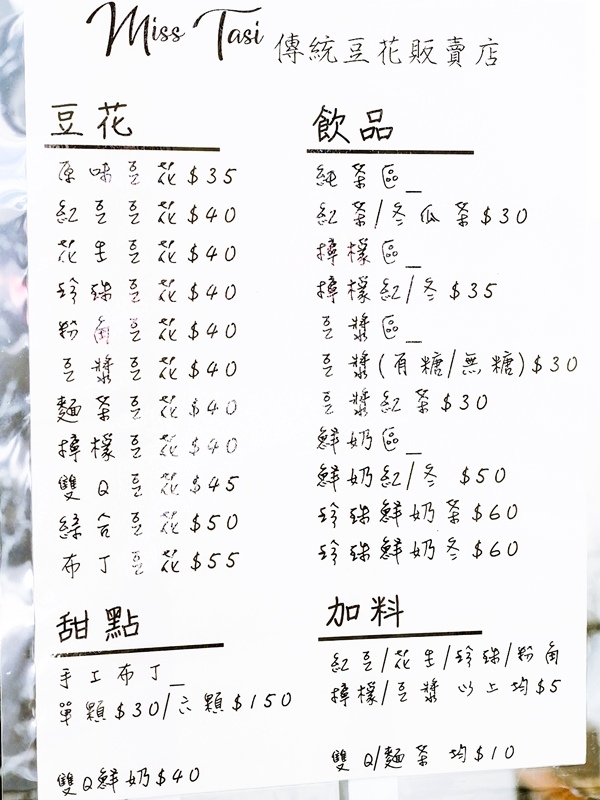 Miss Tasi 傳統豆花販賣店
豆花
原味豆花$35
紅豆豆花$40
花生豆花$40
珍珠豆花$40
粉角豆花$40
豆漿豆花$40
麵茶豆花$40
檸檬豆花$40
雙Q豆花$45
綜合豆花$50
布丁豆花$55
甜點
手工布丁_
單顆$30/六顆$150
雙Q鮮奶$40
飲品
純茶區_
紅茶/冬瓜茶$30
檸檬區_
檸檬紅/冬$35
豆漿區_
豆漿(有糖/無糖)$30
豆漿紅茶$30
鮮奶區_
鮮奶紅/冬 $50
珍珠鮮奶茶$60
珍珠鮮奶冬$60
加料
紅豆/花生/珍珠/粉角
檸檬/豆漿 以上均$5
雙Q/麵茶 均$10